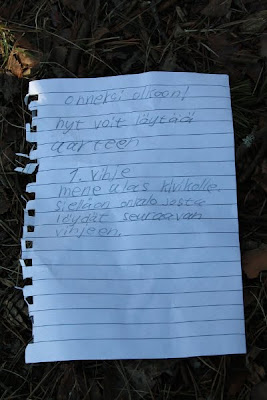 onneksi olkoon!
nyt voit löytää
aarteen
1. vihje
mene alas kivikolle,
sieläon onkalo josta
löydät seuraavan
vihjeen.